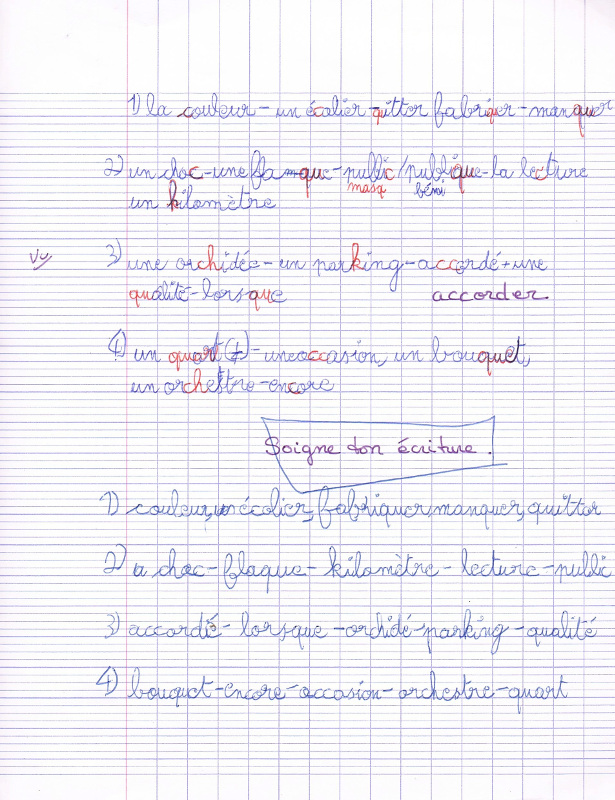 1) la couleur - un écolier - quitter fabriquer - manquer
2) un choc - une flaque - public / publique - la lecture
masq fémi
un kilomètre
vu 3) une orchidée - un parking - accordé + une
qualité - lorsque accorder.
4) un quart (t) - une occasion, un bouquet,
un orchestre - encore
Soigne ton écriture.
1) couleur, un écolier, fabriquer, manquer, quitter
2) choc - flaque - kilomètre - lecture - public
3) accordé - lorsque - orchidé - parking - qualité
4) bouquet - encore - occasion - orchestre - quart